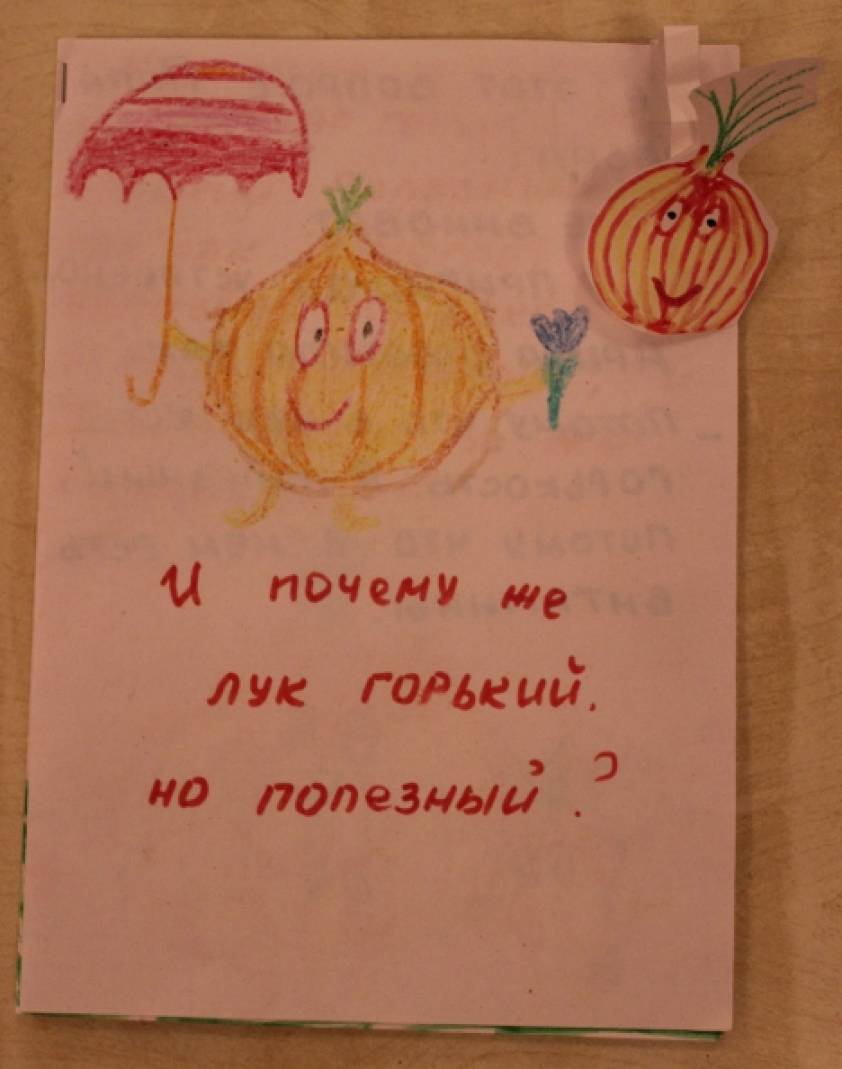 И почему же
лук горький.
но полезный?